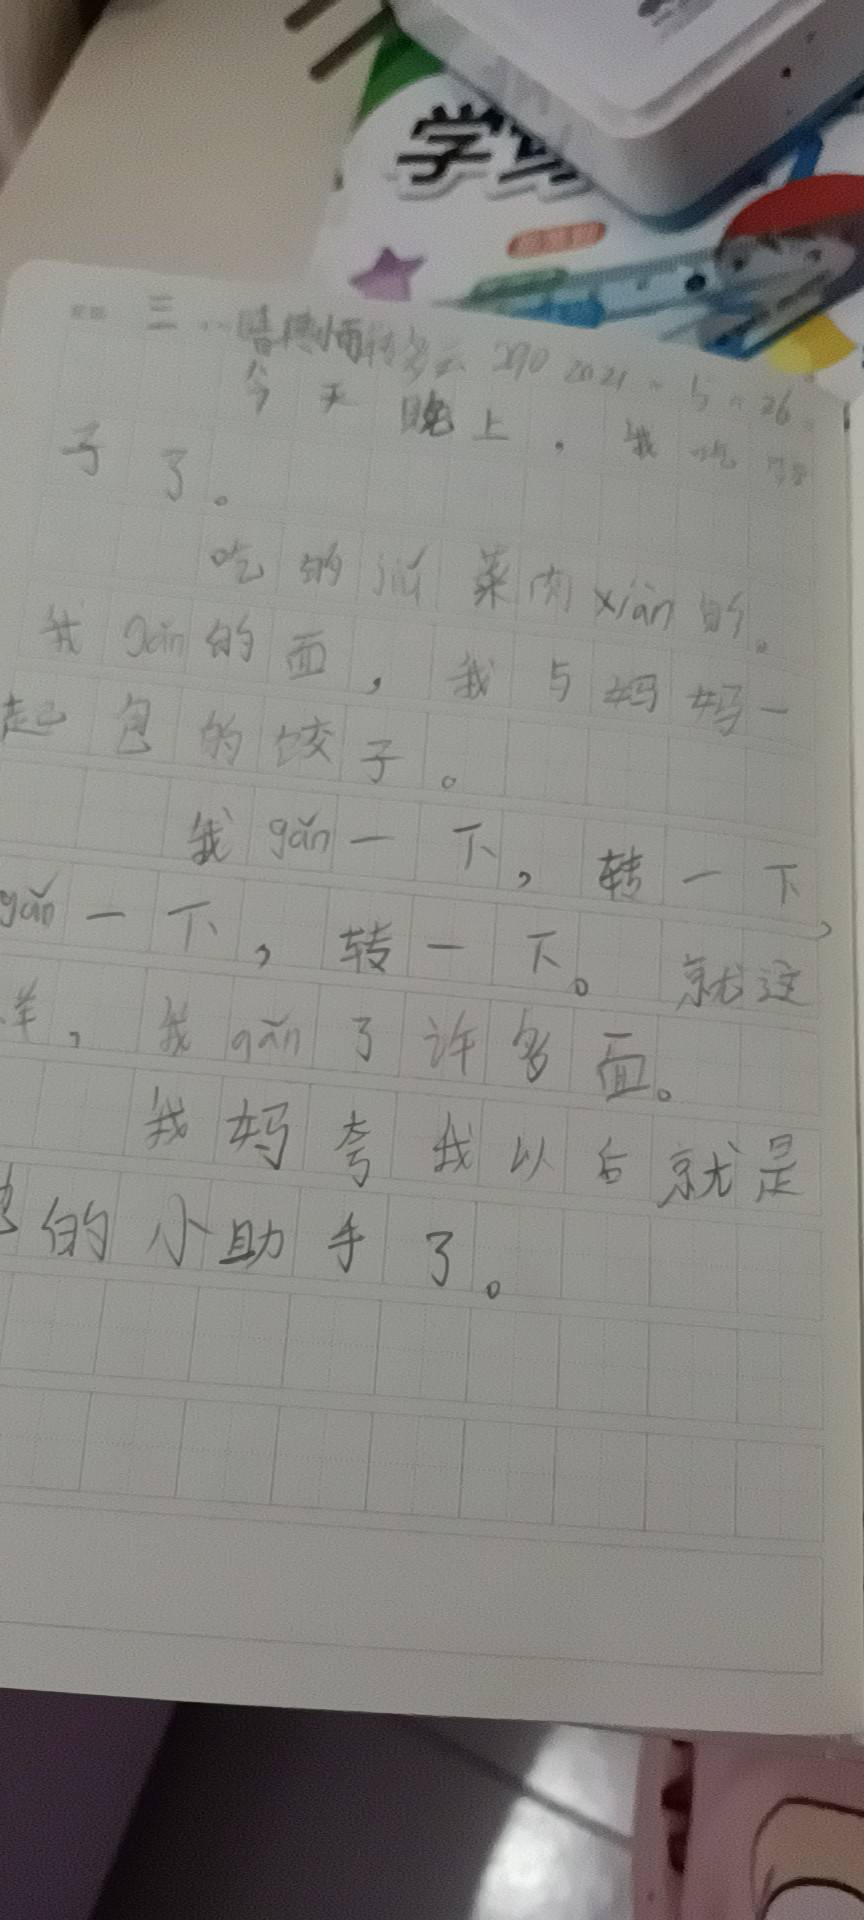 学
三 小雨转多云 290 2021 5 26
今天晚上，我吃饺
子了。
吃的jiǔ菜肉xiàn的。
我gǎn的面，我与妈妈一
起包的饺子。
我gǎn一下，转一下，
gǎn一下，转一下。就这
样，我gǎn了许多面。
我妈夸我以后就是
的小助手了。